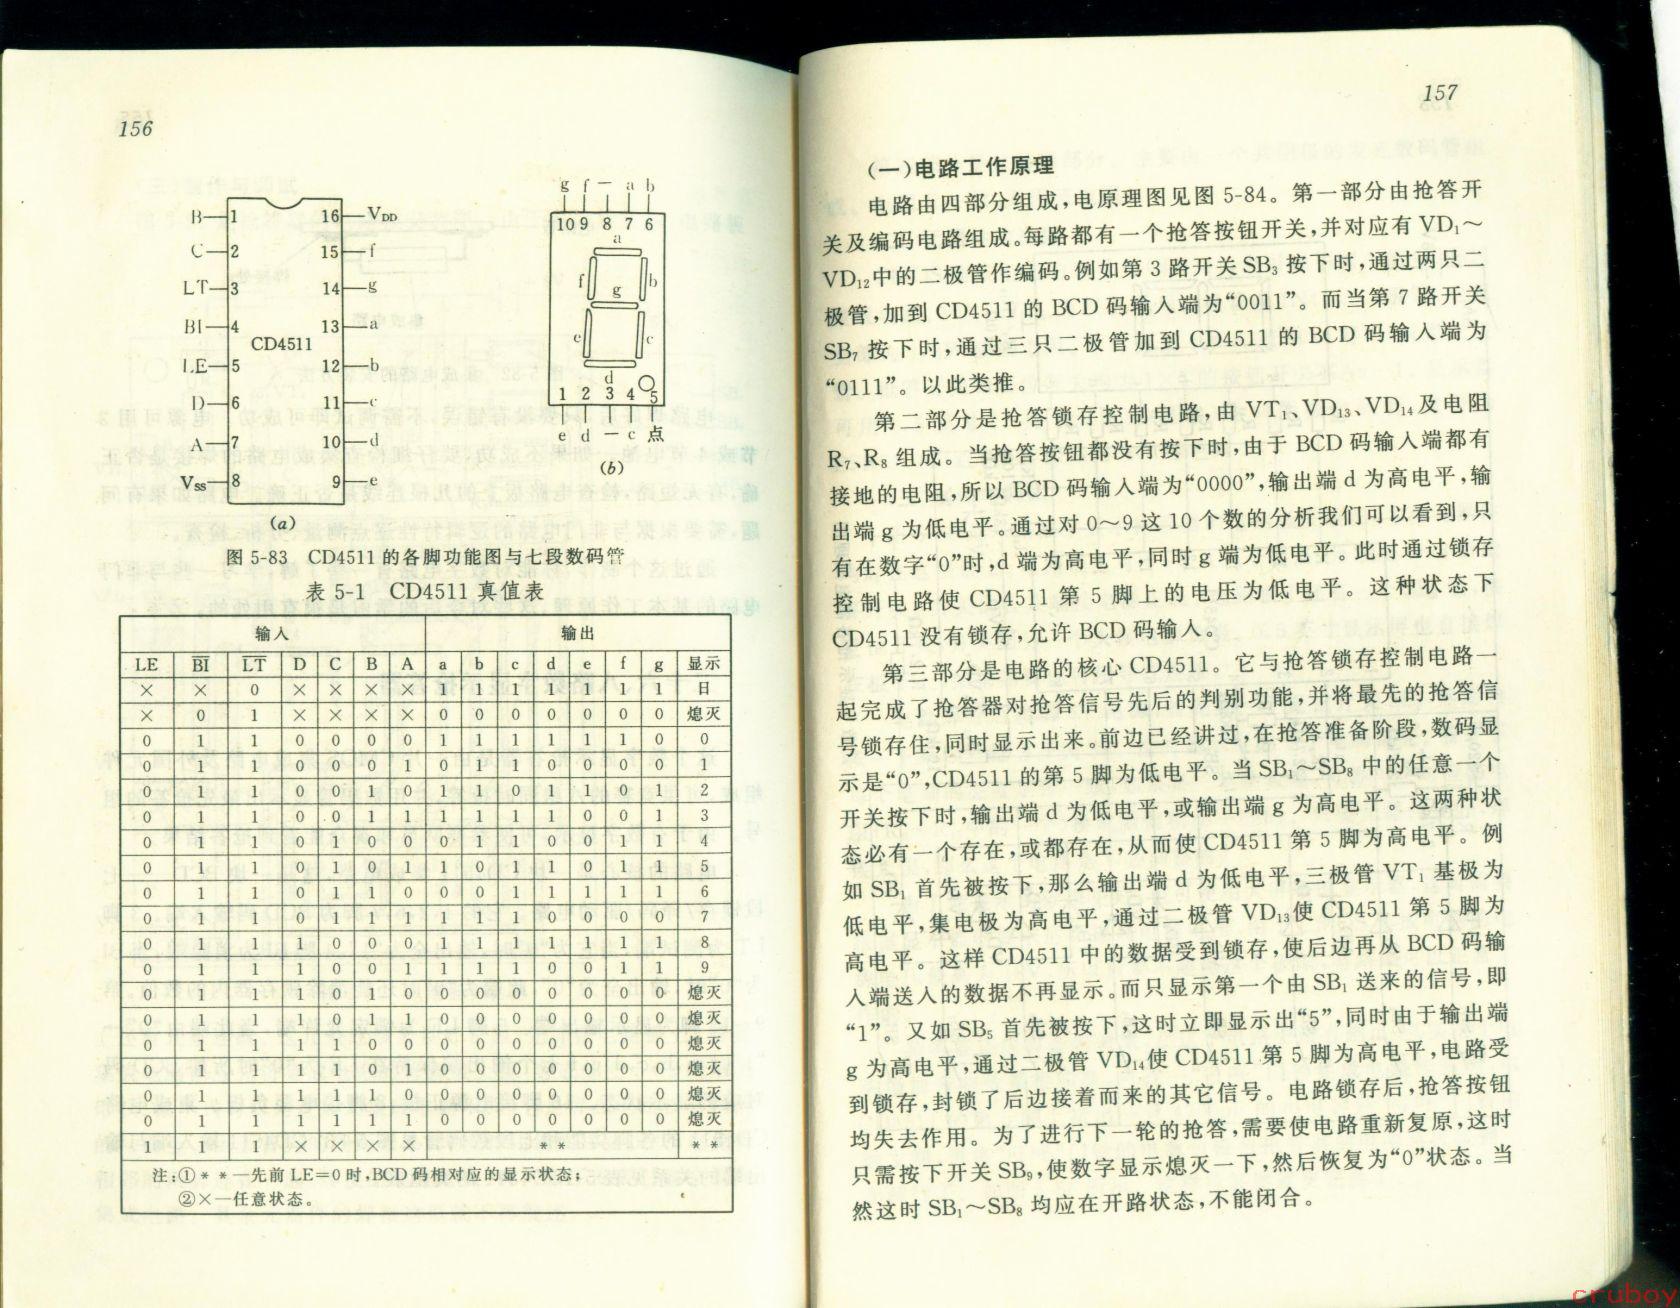 156
B 1 16 VDD
C 2 15 f
LT 3 14 g
BI 4 13 a
CD4511
LE 5 12 b
D 6 11 c
A 7 10 d
Vss 8 9 e
(a)
g f 一 a b
10 9 8 7 6
a
f b
g
e c
d
1 2 3 4 5
e d 一 c 点
(b)
图 5-83 CD4511 的各脚功能图与七段数码管
表 5-1 CD4511 真值表
输入 输出
LE B̅I̅ L̅T̅ D C B A a b c d e f g 显示
× × 0 × × × × 1 1 1 1 1 1 1 日
× 0 1 × × × × 0 0 0 0 0 0 0 熄灭
0 1 1 0 0 0 0 1 1 1 1 1 1 0 0
0 1 1 0 0 0 1 0 1 1 0 0 0 0 1
0 1 1 0 0 1 0 1 1 0 1 1 0 1 2
0 1 1 0 0 1 1 1 1 1 1 0 0 1 3
0 1 1 0 1 0 0 0 1 1 0 0 1 1 4
0 1 1 0 1 0 1 1 0 1 1 0 1 1 5
0 1 1 0 1 1 0 0 0 1 1 1 1 1 6
0 1 1 0 1 1 1 1 1 1 0 0 0 0 7
0 1 1 1 0 0 0 1 1 1 1 1 1 1 8
0 1 1 1 0 0 1 1 1 1 0 0 1 1 9
0 1 1 1 0 1 0 0 0 0 0 0 0 0 熄灭
0 1 1 1 0 1 1 0 0 0 0 0 0 0 熄灭
0 1 1 1 1 0 0 0 0 0 0 0 0 0 熄灭
0 1 1 1 1 0 1 0 0 0 0 0 0 0 熄灭
0 1 1 1 1 1 0 0 0 0 0 0 0 0 熄灭
0 1 1 1 1 1 1 0 0 0 0 0 0 0 熄灭
1 1 1 × × × × * * * *
注:①* *—先前 LE=0 时,BCD 码相对应的显示状态;
②×—任意状态。
157
(一)电路工作原理
电路由四部分组成,电原理图见图 5-84。第一部分由抢答开
关及编码电路组成。每路都有一个抢答按钮开关,并对应有 VD₁～
VD₁₂中的二极管作编码。例如第 3 路开关 SB₃ 按下时,通过两只二
极管,加到 CD4511 的 BCD 码输入端为“0011”。而当第 7 路开关
SB₇ 按下时,通过三只二极管加到 CD4511 的 BCD 码输入端为
“0111”。以此类推。
第二部分是抢答锁存控制电路,由 VT₁、VD₁₃、VD₁₄及电阻
R₇、R₈ 组成。当抢答按钮都没有按下时,由于 BCD 码输入端都有
接地的电阻,所以 BCD 码输入端为“0000”,输出端 d 为高电平,输
出端 g 为低电平。通过对 0～9 这 10 个数的分析我们可以看到,只
有在数字“0”时,d 端为高电平,同时 g 端为低电平。此时通过锁存
控制电路使 CD4511 第 5 脚上的电压为低电平。这种状态下
CD4511 没有锁存,允许 BCD 码输入。
第三部分是电路的核心 CD4511。它与抢答锁存控制电路一
起完成了抢答器对抢答信号先后的判别功能,并将最先的抢答信
号锁存住,同时显示出来。前边已经讲过,在抢答准备阶段,数码显
示是“0”,CD4511 的第 5 脚为低电平。当 SB₁～SB₈ 中的任意一个
开关按下时,输出端 d 为低电平,或输出端 g 为高电平。这两种状
态必有一个存在,或都存在,从而使 CD4511 第 5 脚为高电平。例
如 SB₁ 首先被按下,那么输出端 d 为低电平,三极管 VT₁ 基极为
低电平,集电极为高电平,通过二极管 VD₁₃使 CD4511 第 5 脚为
高电平。这样 CD4511 中的数据受到锁存,使后边再从 BCD 码输
入端送入的数据不再显示。而只显示第一个由 SB₁ 送来的信号,即
“1”。又如 SB₅ 首先被按下,这时立即显示出“5”,同时由于输出端
g 为高电平,通过二极管 VD₁₄使 CD4511 第 5 脚为高电平,电路受
到锁存,封锁了后边接着而来的其它信号。电路锁存后,抢答按钮
均失去作用。为了进行下一轮的抢答,需要使电路重新复原,这时
只需按下开关 SB₉,使数字显示熄灭一下,然后恢复为“0”状态。当
然这时 SB₁～SB₈ 均应在开路状态,不能闭合。
cruboy